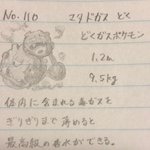 No.110
マタドガス どく
どくガスポケモン
1.2m
9.5kg
体内に含まれる毒ガスを
ぎりぎりまで薄めると
最高級の香水ができる。